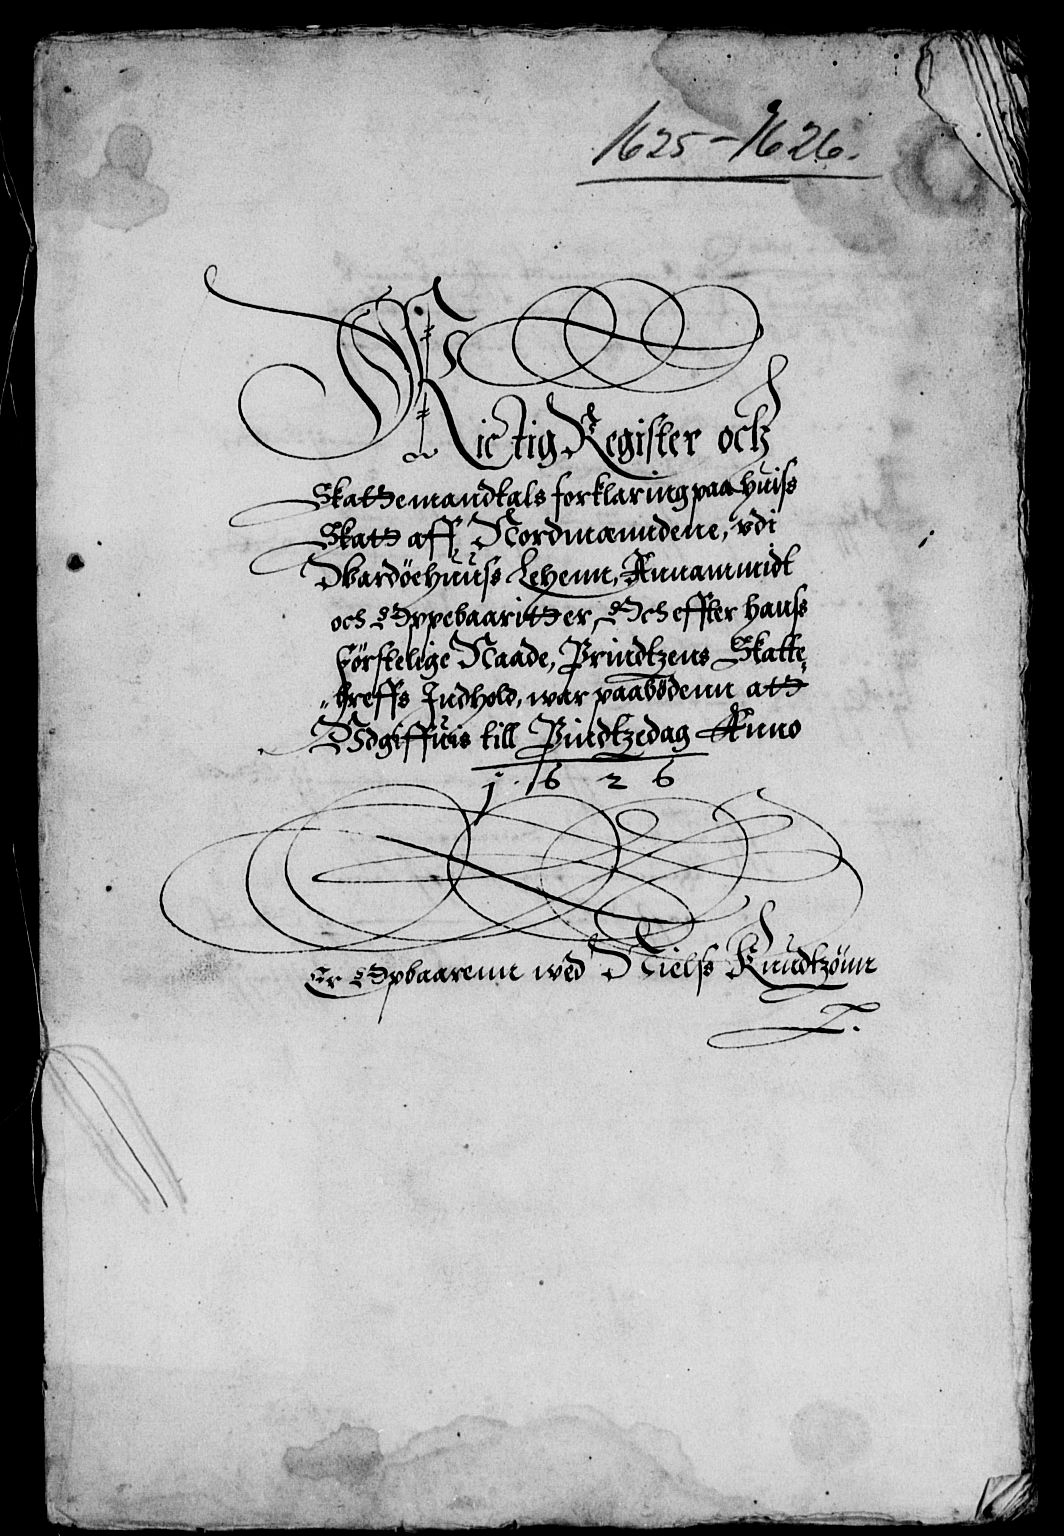 1625-1626.
Rictig Register och
Skattemandtals forklaring paa huiss
Skatt aff Nordmænndene, vdi
Wardøehuuss Lehenn, Annammidt
och Oppebaaritt er, Och effter hanss
Førstelige Naade, Prindtzens Skatte,,
,,breffs Indhold, war paabødenn att
Vdgiffuis till Pindtzedag Anno
1626
Er Opbaarenn wed Nielss Knudtzønn